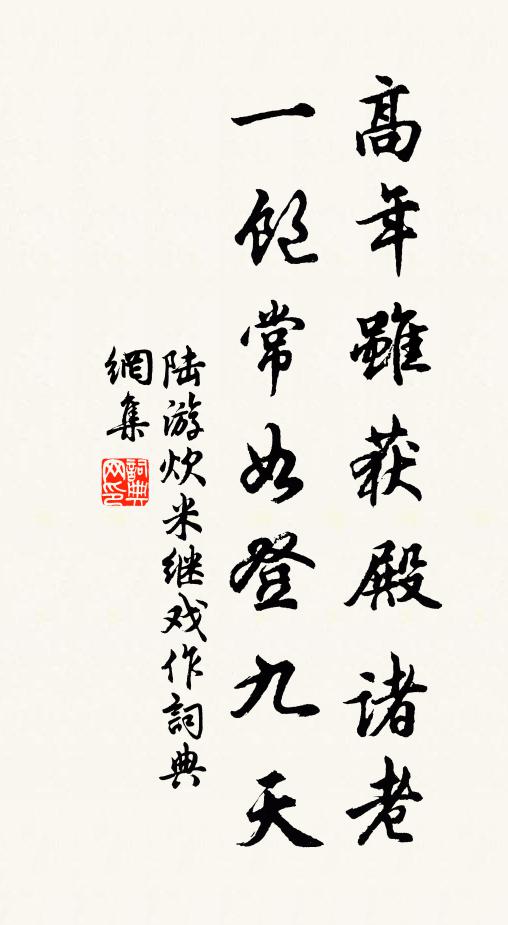 高年雖获殿諸老
一飽常如登九天
陆游炊米继戏作詞典
網集
詞典网印